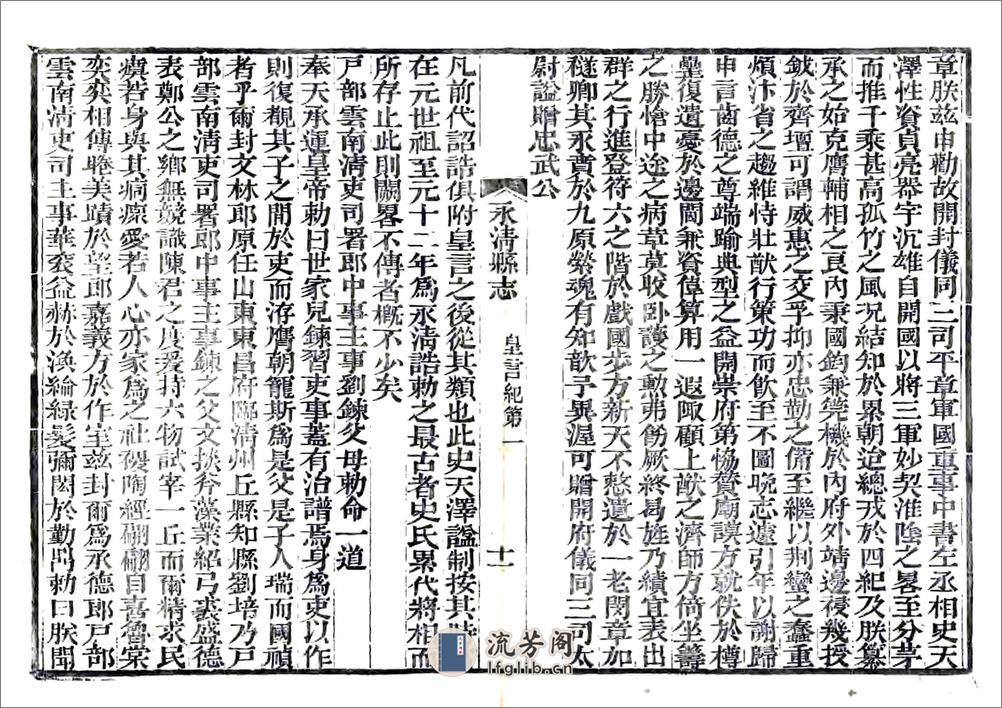 章朕兹申勸故開封儀同三司平章軍國重事中書左丞相史天
澤性資貞亮器宇沉雄自開國以將三軍妙契淮陰之畧至分茅
而推千乘甚高孤竹之風況結知於累朝迨總戎於四紀及朕纂
承之始克膺輔相之良內秉國鈞兼筦機於內府外靖邊祲幾授
鉞於齊壇可謂威惠之交孚抑亦忠勤之備至繼以荆蠻之蠢重
煩汴省之趨維恃壯猷行策功而飲至不圖晚志遽引年以謝歸
申言齒德之尊端踰典型之益開崇府第恊贊廟謨方就佚於樽
罍復遺憂於邊閫兼資偉算用一遐陬顧上猷之濟師方倚坐籌
之勝愴中途之病草莫收卧護之勲弗飭厥終曷旌乃績宜表出
群之行進登符六之階於戲國步方新天不憖遺於一老閔章加
襚卿其永賁於九原榮魂有知歆予異渥可贈開府儀同三司太
尉諡贈忠武公
永清縣志
皇言紀第一
十一
凡前代詔誥俱附皇言之後從其類也此史天澤諡制按其時
在元世祖至元十二年為永清誥勅之最古者史氏累代將相而
所存止此則闕畧不傳者槪不少矣
戸部雲南清吏司署郎中事主事劉鍊父母勅命一道
奉天承運皇帝勅曰世家兒鍊習吏事蓋有治譜焉身為吏以作
則復觀其子之閒於吏而洊膺朝寵斯為是父是子人瑞而國禎
者乎爾封文林郎原任山東東昌府臨清州丘縣知縣劉培乃戸
部雲南清吏司署郎中事主事鍊之父文掞弇藻業紹弓裘盛德
表鄭公之鄉無競識陳君之度爰持六物試宰一丘而爾精求民
瘼若身與其痌瘝愛若人心亦家為之社稷陶經翩翩目喜魯棠
奕奕相傳騰美蹟於望郎嘉義方於作室兹封爾為承德郎戸部
雲南清吏司主事華衮益赫於渙綸綠髮彌閎於勤昺勅曰朕聞
流芳阁
lfglib.cn